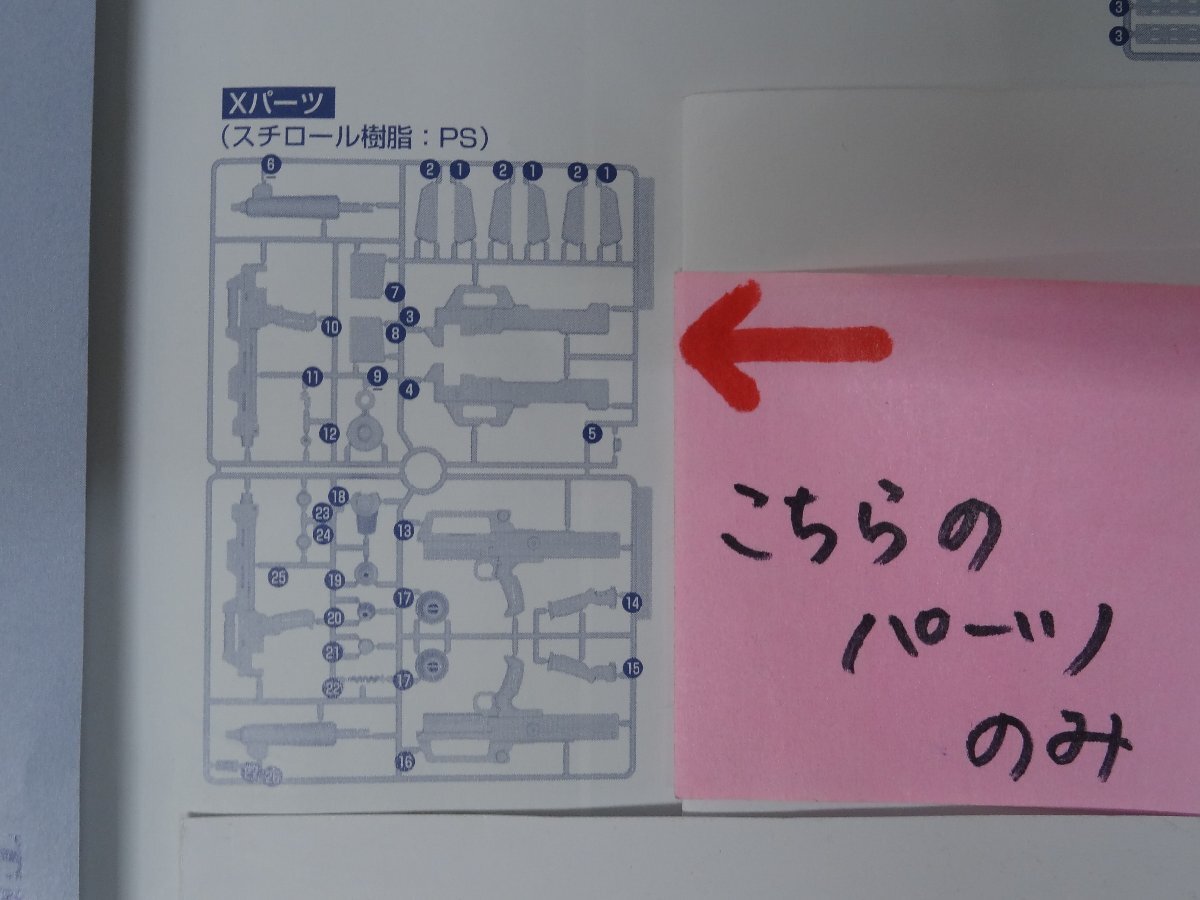 3
3
Xパーツ
(スチロール樹脂：PS)
6
2 1 2 1 2 1
7
3
10
8
11
9
4
12
5
18
23
13
24
25
19
17
14
20
21
15
22
17
16
こちらの
パーツ
のみ